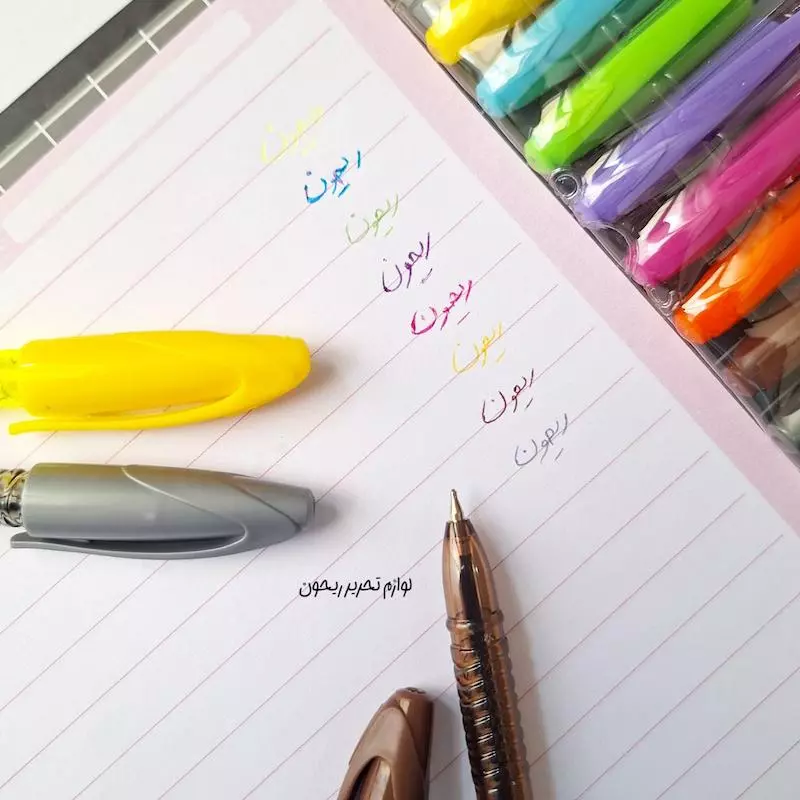 ریحون
ریحون
ریحون
ریحون
ریحون
ریحون
ریحون
ریحون
لوازم تحریر ریحون